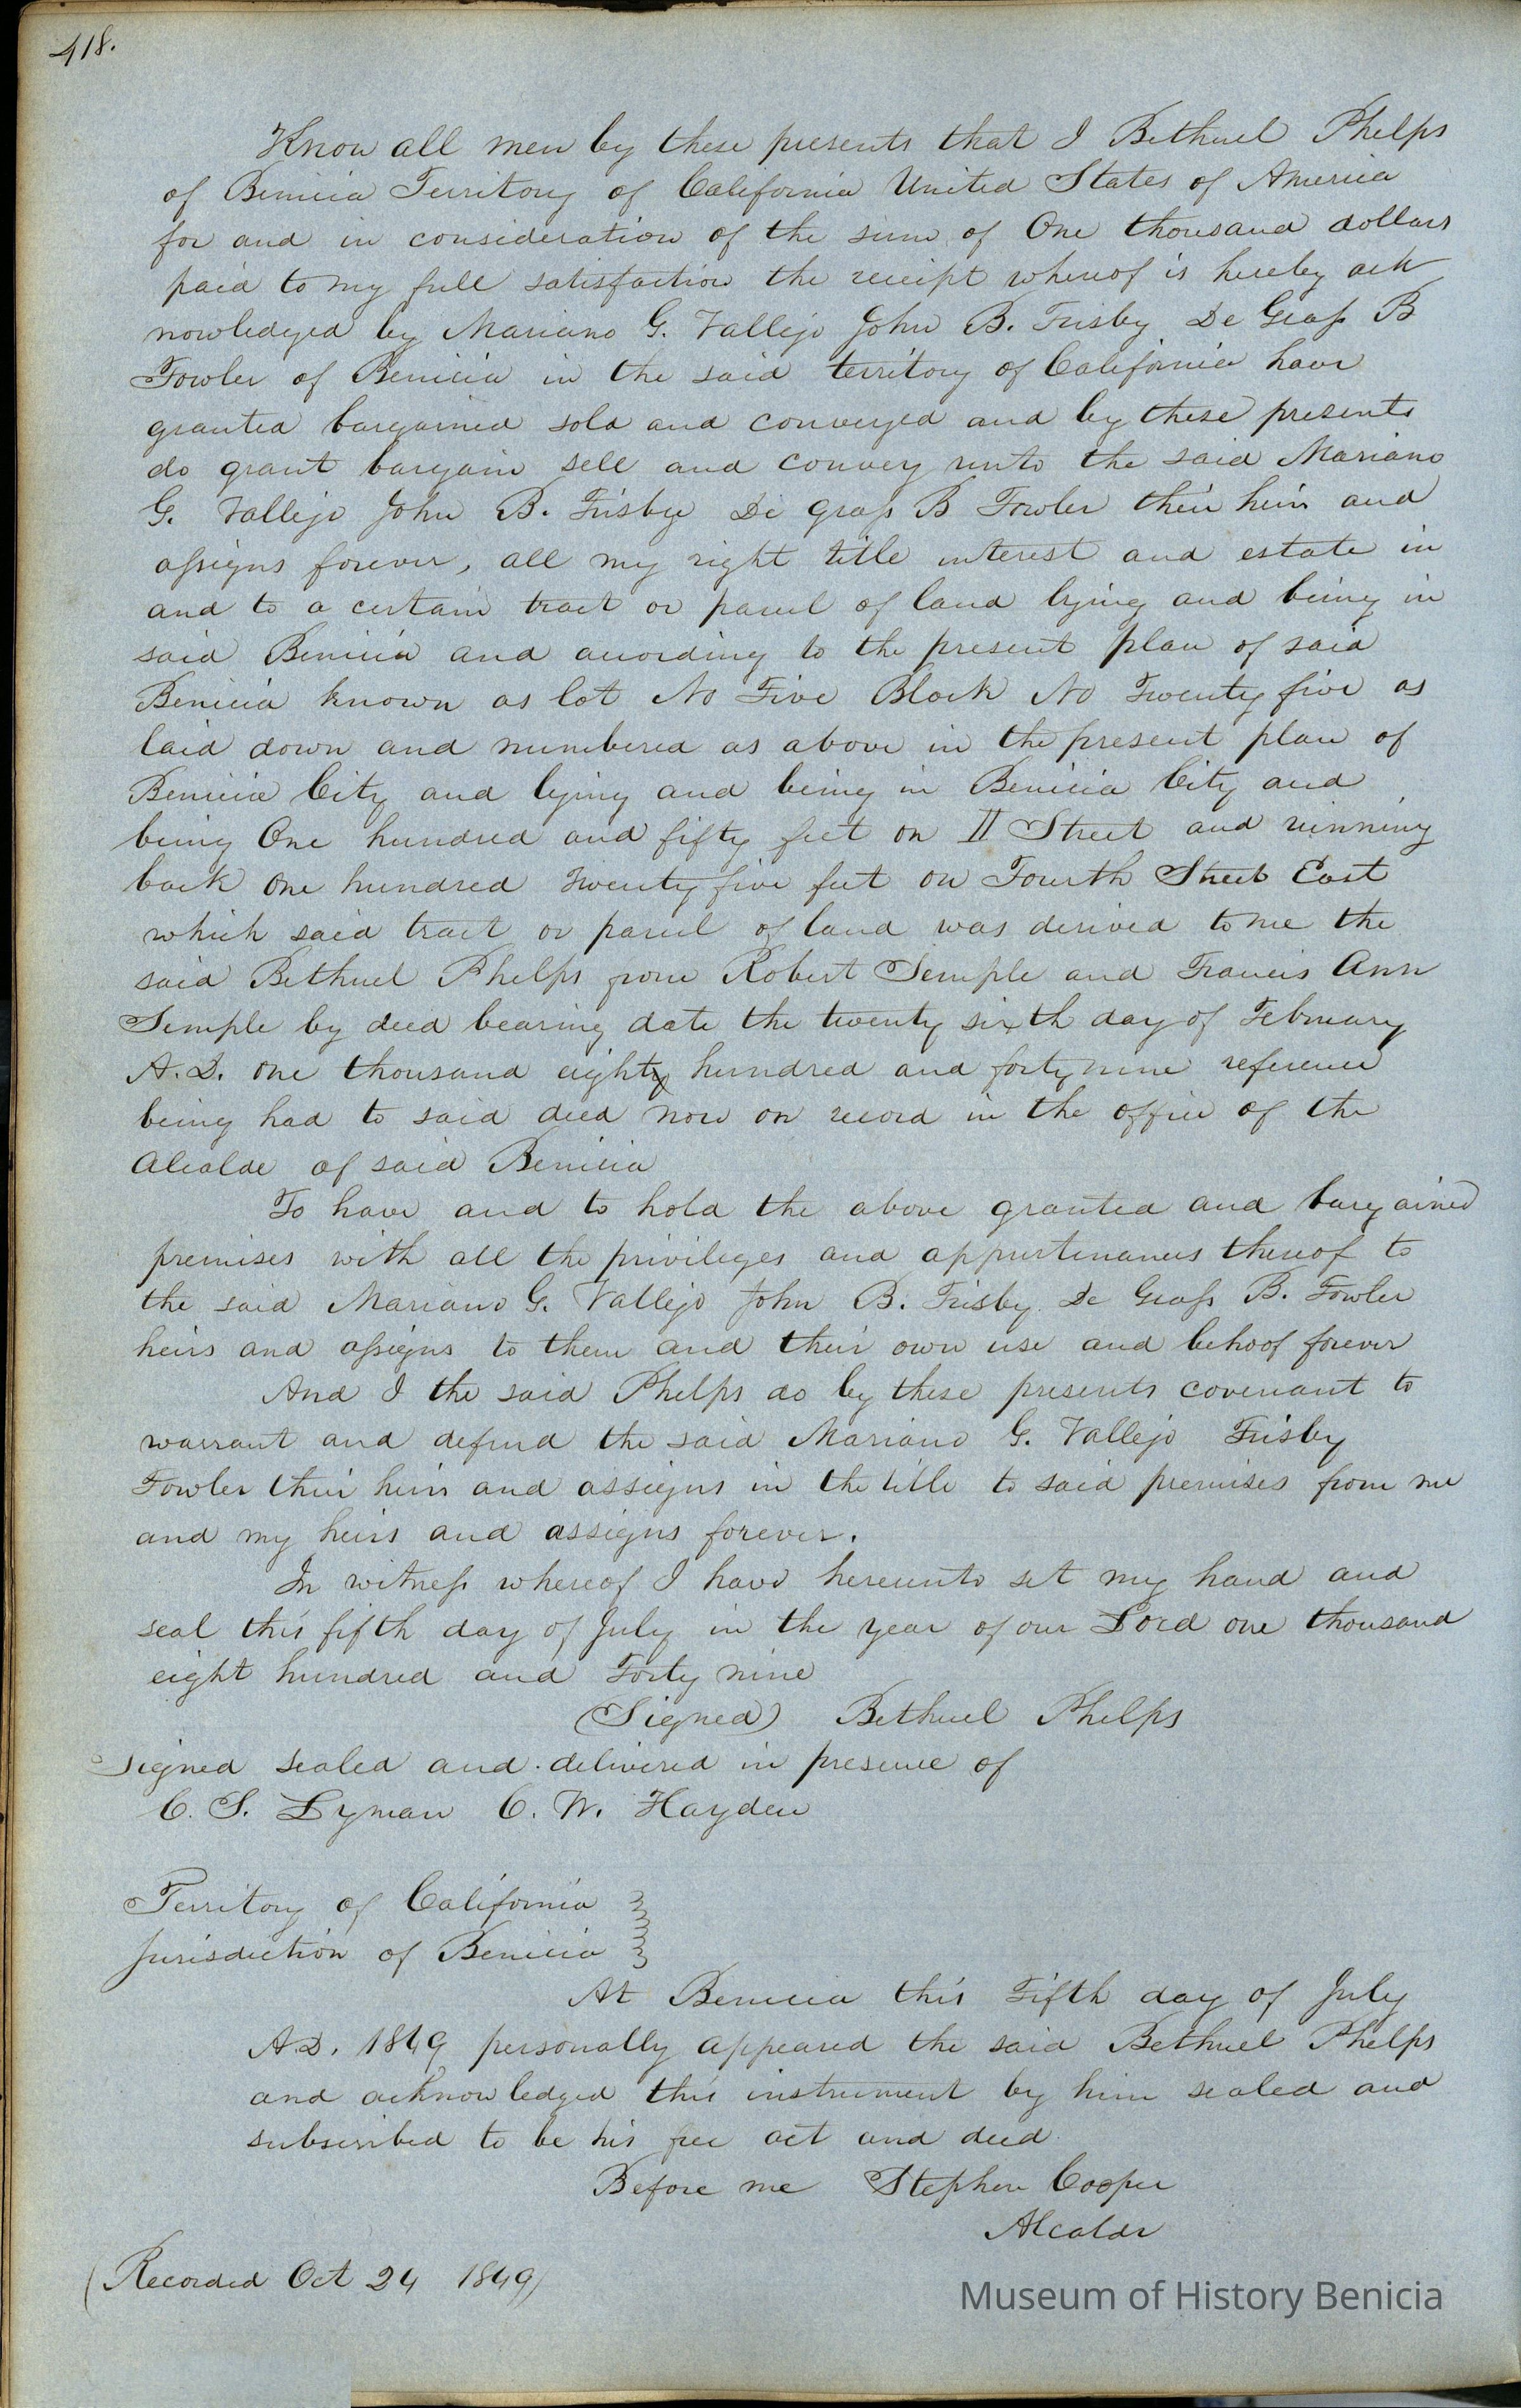 418.
Know all men by these presents that I Bethuel Phelps
of Benicia Territory of California United States of America
for and in consideration of the sum of One thousand dollars
paid to my full satisfaction the receipt whereof is hereby ack
nowledged by Mariano G. Vallejo John B. Frisby De Grass B
Fowler of Benicia in the said territory of California have
granted bargained sold and conveyed and by these presents
do grant bargain sell and convey unto the said Mariano
G. Vallejo John B. Frisby De grass B Fowler their heirs and
assigns forever, all my right title interest and estate in
and to a certain tract or parcel of land lying and being in
said Benicia and according to the present plan of said
Benicia known as lot No Five Block No Twenty five as
laid down and numbered as above in the present plan of
Benicia City and lying and being in Benicia City and
being One hundred and fifty feet on II Street and running
back One hundred Twenty five feet on Fourth Street East
which said tract or parcel of land was derived to me the
said Bethuel Phelps from Robert Semple and Francis Ann
Semple by deed bearing date the twenty sixth day of February
A.D. one thousand eight hundred and forty nine reference
being had to said deed now on record in the office of the
Alcalde of said Benicia
To have and to hold the above granted and bargained
premises with all the privileges and appurtenances thereof to
the said Mariano G. Vallejo John B. Frisby De Grass B. Fowler
heirs and assigns to them and their own use and behoof forever
And I the said Phelps do by these presents covenant to
warrant and defend the said Mariano G. Vallejo Frisby
Fowler their heirs and assigns in the title to said premises from me
and my heirs and assigns forever.
In witness whereof I have hereunto set my hand and
seal this fifth day of July in the year of our Lord one thousand
eight hundred and Forty nine
(Signed) Bethuel Phelps
Signed sealed and delivered in presence of
C. S. Lyman C. W. Hayden
Territory of California
Jurisdiction of Benicia
At Benicia this Fifth day of July
A.D. 1849 personally appeared the said Bethuel Phelps
and acknowledged this instrument by him sealed and
subscribed to be his free act and deed
Before me Stephen Cooper
Alcalde
(Recorded Oct 24 1849)
Museum of History Benicia